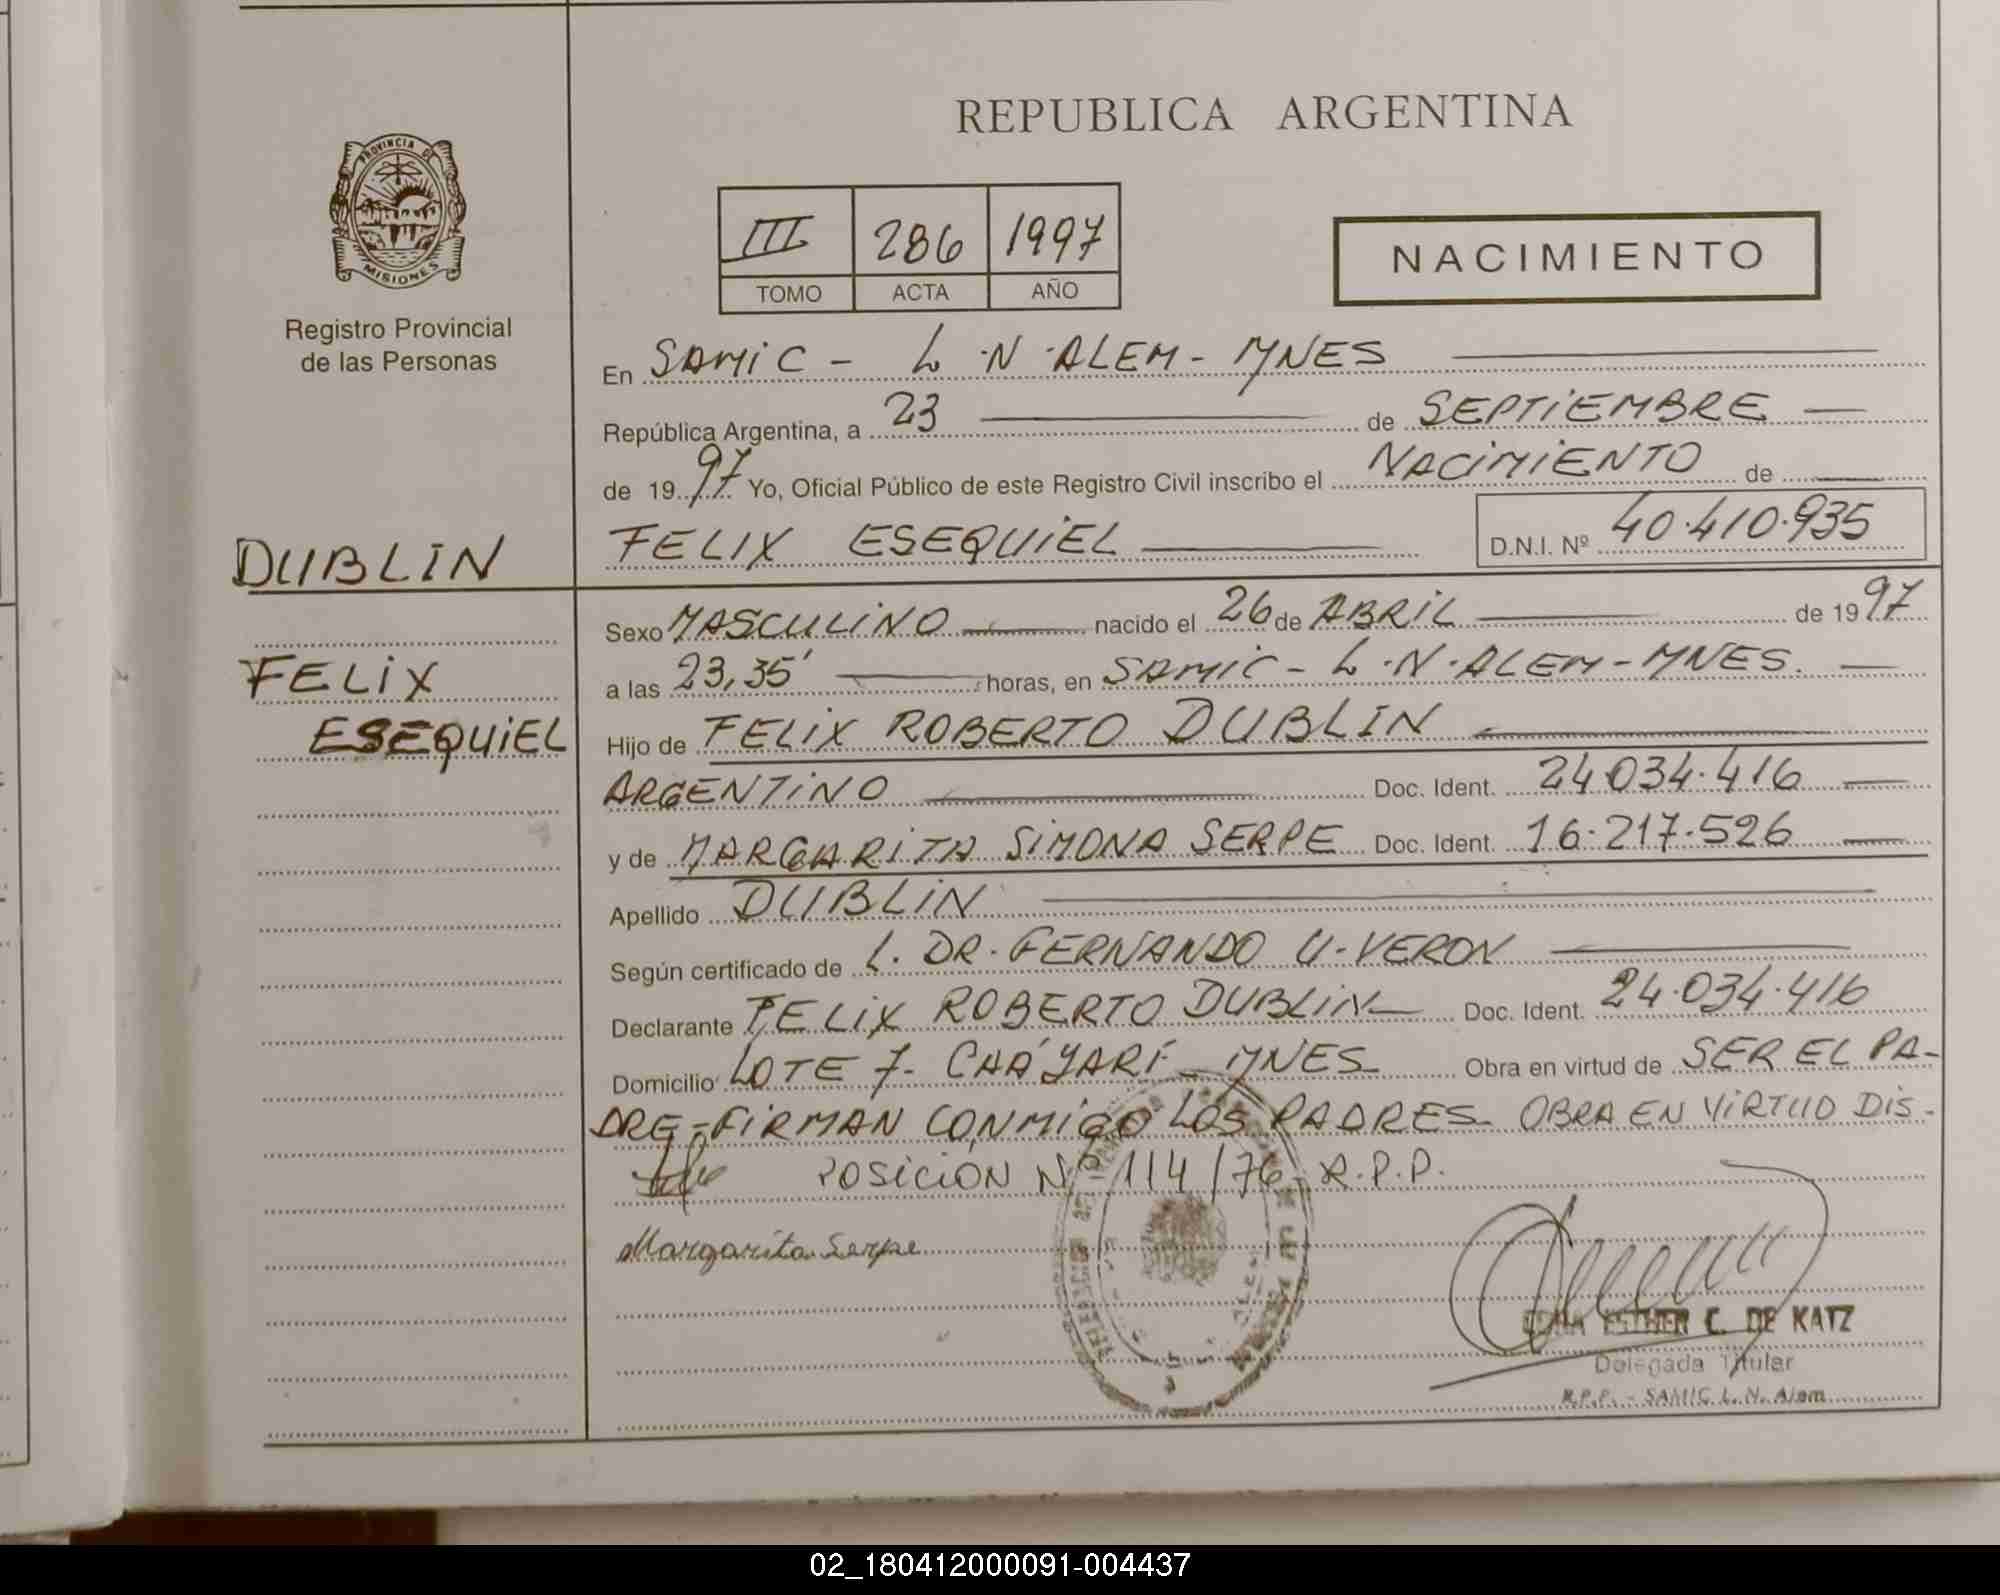 REPUBLICA ARGENTINA
PROVINCIA DE
MISIONES
Registro Provincial
de las Personas
III 286 1997
TOMO ACTA AÑO
NACIMIENTO
En SAMIC - L.N.ALEM - MNES
República Argentina, a 23 de SEPTIEMBRE
de 1997 Yo, Oficial Público de este Registro Civil inscribo el NACIMIENTO de
FELIX ESEQUIEL D.N.I. Nº 40.410.935
DUBLIN
FELIX
ESEQUIEL
Sexo MASCULINO nacido el 26 de ABRIL de 1997
a las 23,35' horas, en SAMIC - L.N.ALEM - MNES.
Hijo de FELIX ROBERTO DUBLIN
ARGENTINO Doc. Ident. 24.034.416
y de MARGARITA SIMONA SERPE Doc. Ident. 16.217.526
Apellido DUBLIN
Según certificado de L. DR. FERNANDO U. VERON
Declarante FELIX ROBERTO DUBLIN Doc. Ident. 24.034.416
Domicilio LOTE 7 - CHAYARI - MNES Obra en virtud de SER EL PA-
DRE - FIRMAN CONMIGO LOS PADRES - OBRA EN VIRTUD DIS-
POSICION Nº 114/76 - R.P.P.
Margarita Serpe
ESTHER C. DE KATZ
Delegada Titular
R.P.P. - SAMIC L. N. Alem
02_180412000091-004437